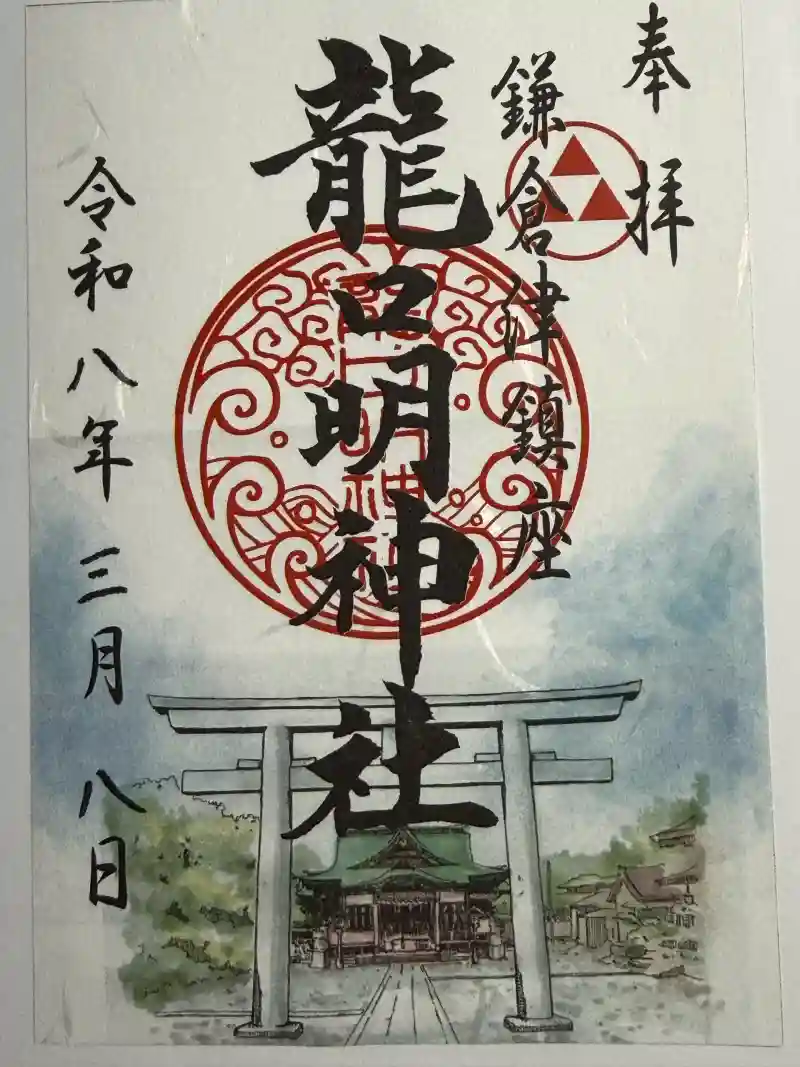 奉拝
鎌倉津鎮座
龍口明神社
令和八年三月八日